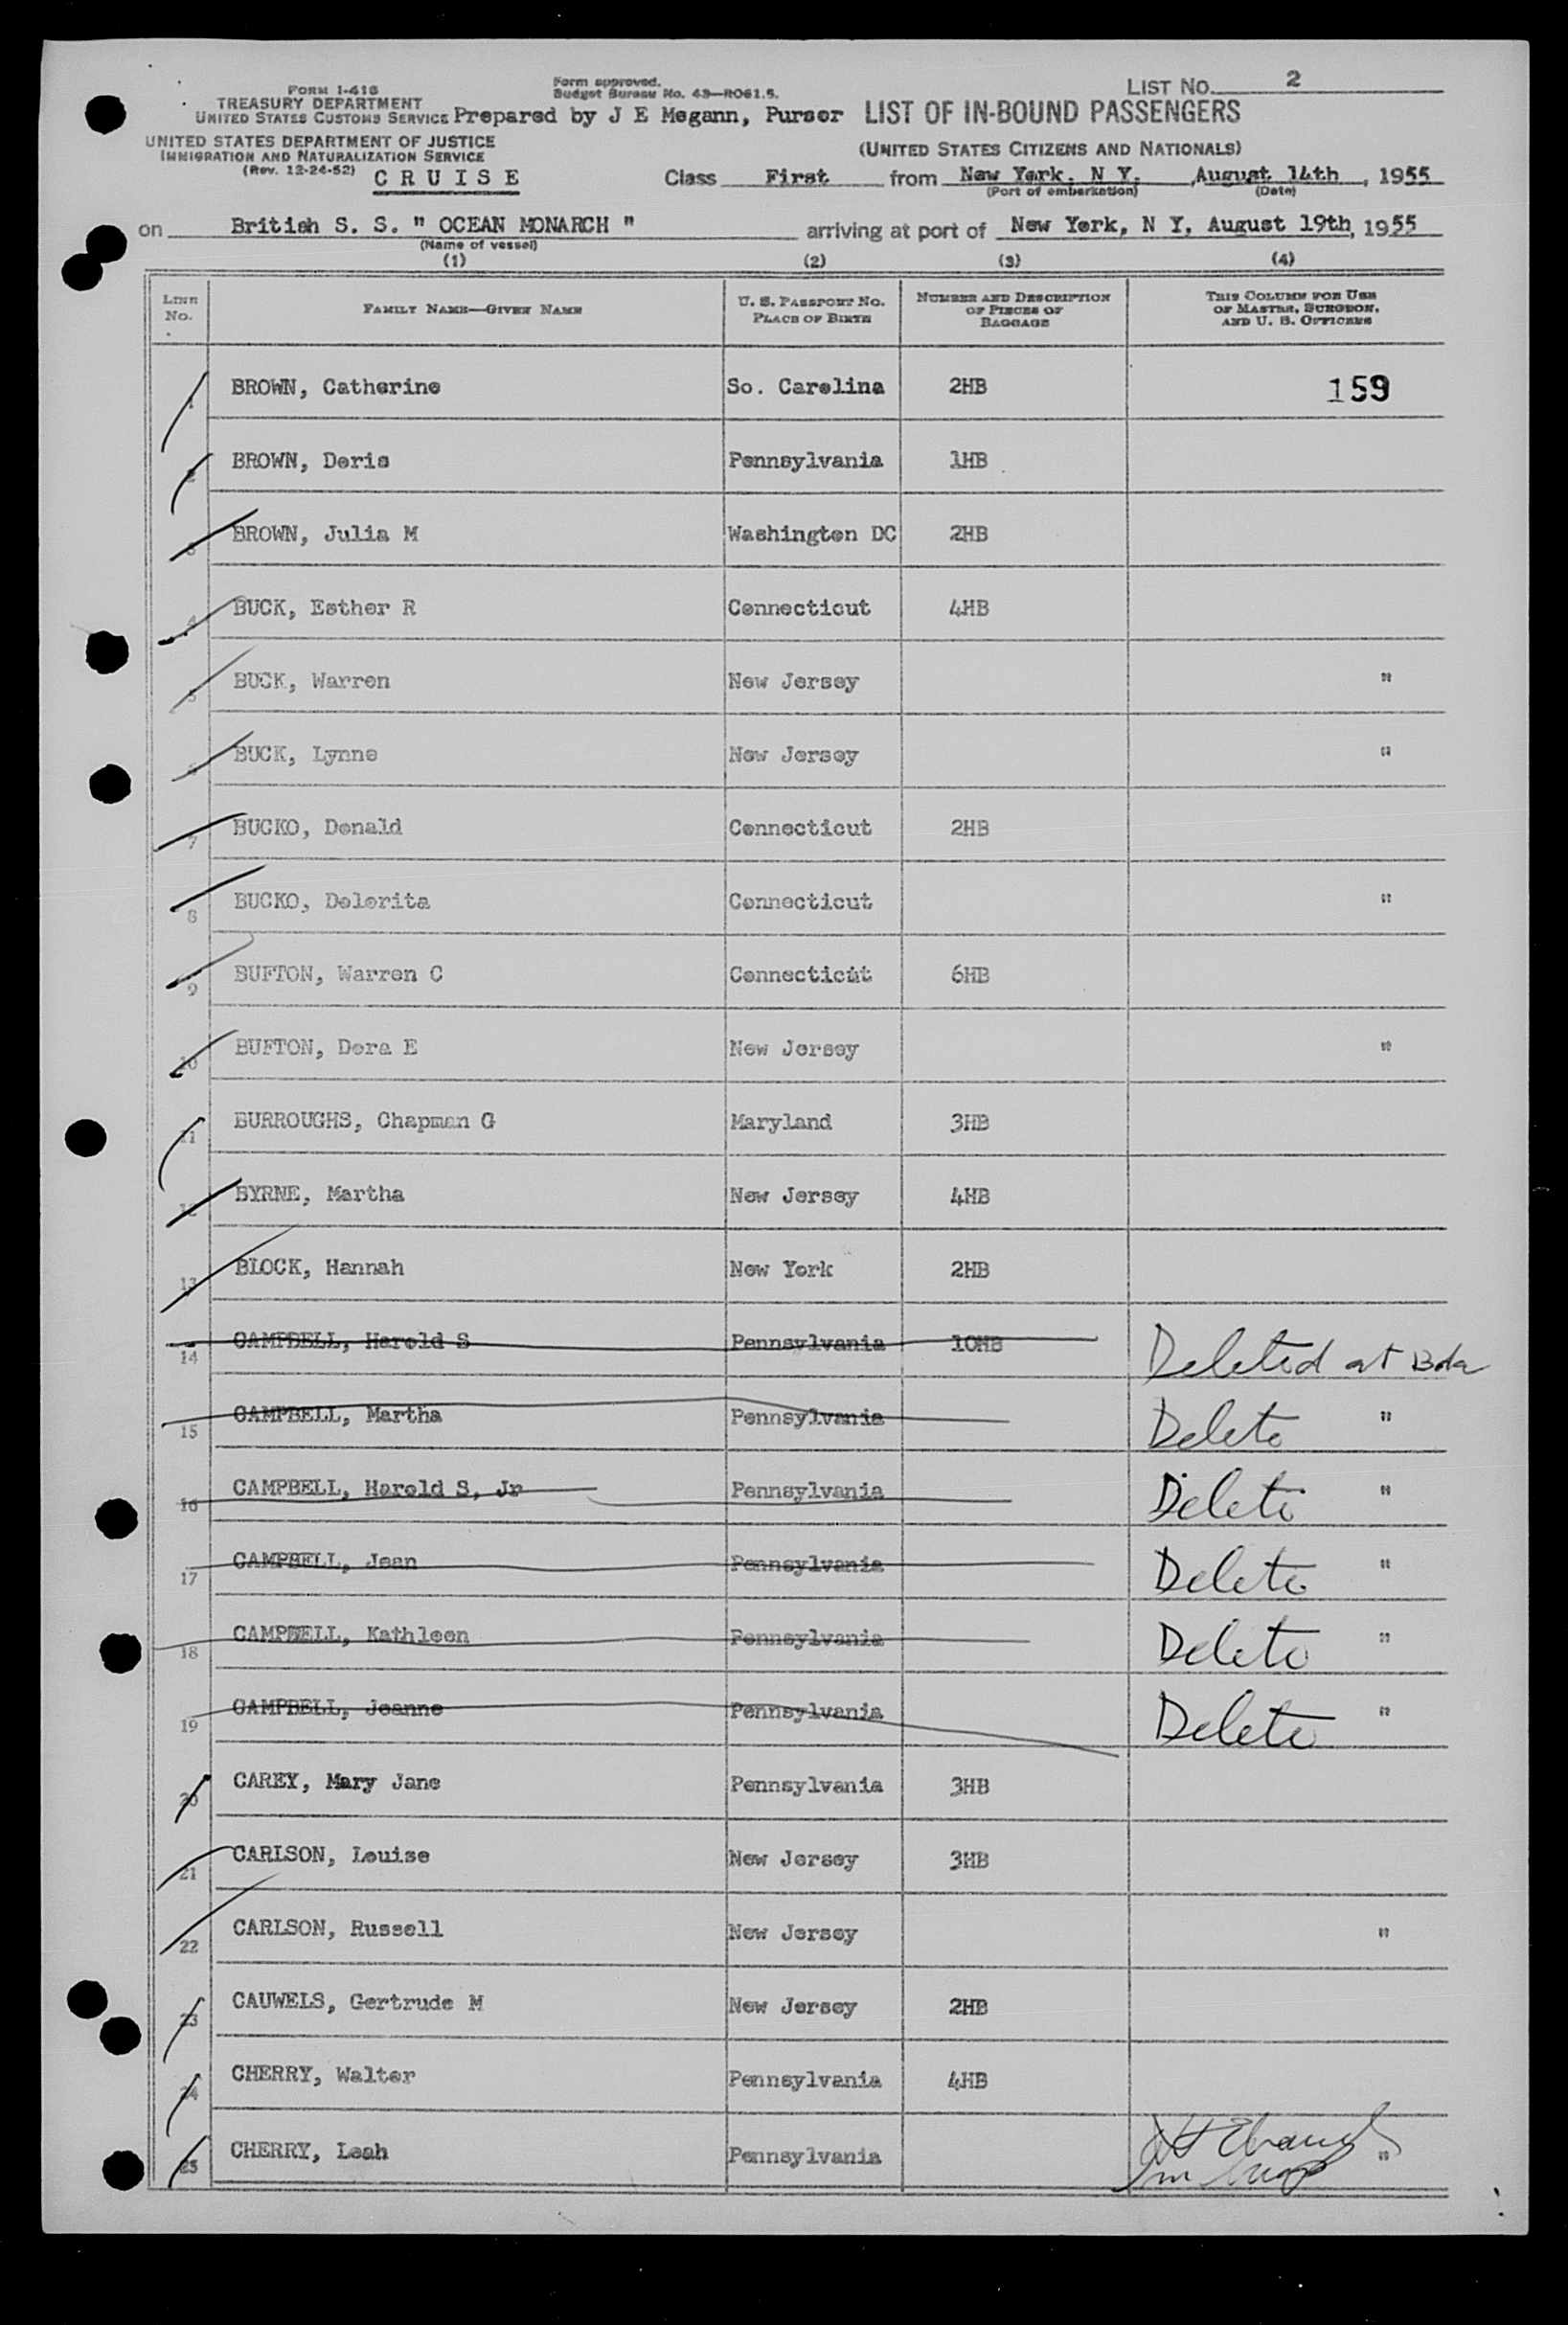 LIST No. 2
FORM I-418
TREASURY DEPARTMENT
UNITED STATES CUSTOMS SERVICE
Form approved.
Budget Bureau No. 43—RO61.5.
Prepared by J E Megann, Purser
LIST OF IN-BOUND PASSENGERS
UNITED STATES DEPARTMENT OF JUSTICE
IMMIGRATION AND NATURALIZATION SERVICE
(Rev. 12-24-52)
(UNITED STATES CITIZENS AND NATIONALS)
C R U I S E Class First from New York. N Y. , August 14th , 1955
(Port of embarkation) (Date)
on British S. S. " OCEAN MONARCH " arriving at port of New York, N Y, August 19th, 1955
(Name of vessel)
(1) (2) (3) (4)
LINE No. FAMILY NAME—GIVEN NAME U. S. PASSPORT NO. PLACE OF BIRTH NUMBER AND DESCRIPTION OF PIECES OF BAGGAGE THIS COLUMN FOR USE OF MASTER, SURGEON, AND U. S. OFFICERS
1 BROWN, Catherine So. Carolina 2HB 159
2 BROWN, Doris Pennsylvania 1HB
3 BROWN, Julia M Washington DC 2HB
4 BUCK, Esther R Connecticut 4HB
5 BUCK, Warren New Jersey "
6 BUCK, Lynne New Jersey "
7 BUCKO, Donald Connecticut 2HB
8 BUCKO, Dolorita Connecticut "
9 BUFTON, Warren C Connecticut 6HB
10 BUFTON, Dora E New Jersey "
11 BURROUGHS, Chapman G Maryland 3HB
12 BYRNE, Martha New Jersey 4HB
13 BLOCK, Hannah New York 2HB
14 CAMPBELL, Harold S Pennsylvania 10HB Deleted at Bda
15 CAMPBELL, Martha Pennsylvania Delete "
16 CAMPBELL, Harold S, Jr Pennsylvania Delete "
17 CAMPBELL, Jean Pennsylvania Delete "
18 CAMPBELL, Kathleen Pennsylvania Delete "
19 CAMPBELL, Joanne Pennsylvania Delete "
20 CAREY, Mary Jane Pennsylvania 3HB
21 CARLSON, Louise New Jersey 3HB
22 CARLSON, Russell New Jersey "
23 CAUWELS, Gertrude M New Jersey 2HB
24 CHERRY, Walter Pennsylvania 4HB
25 CHERRY, Leah Pennsylvania "